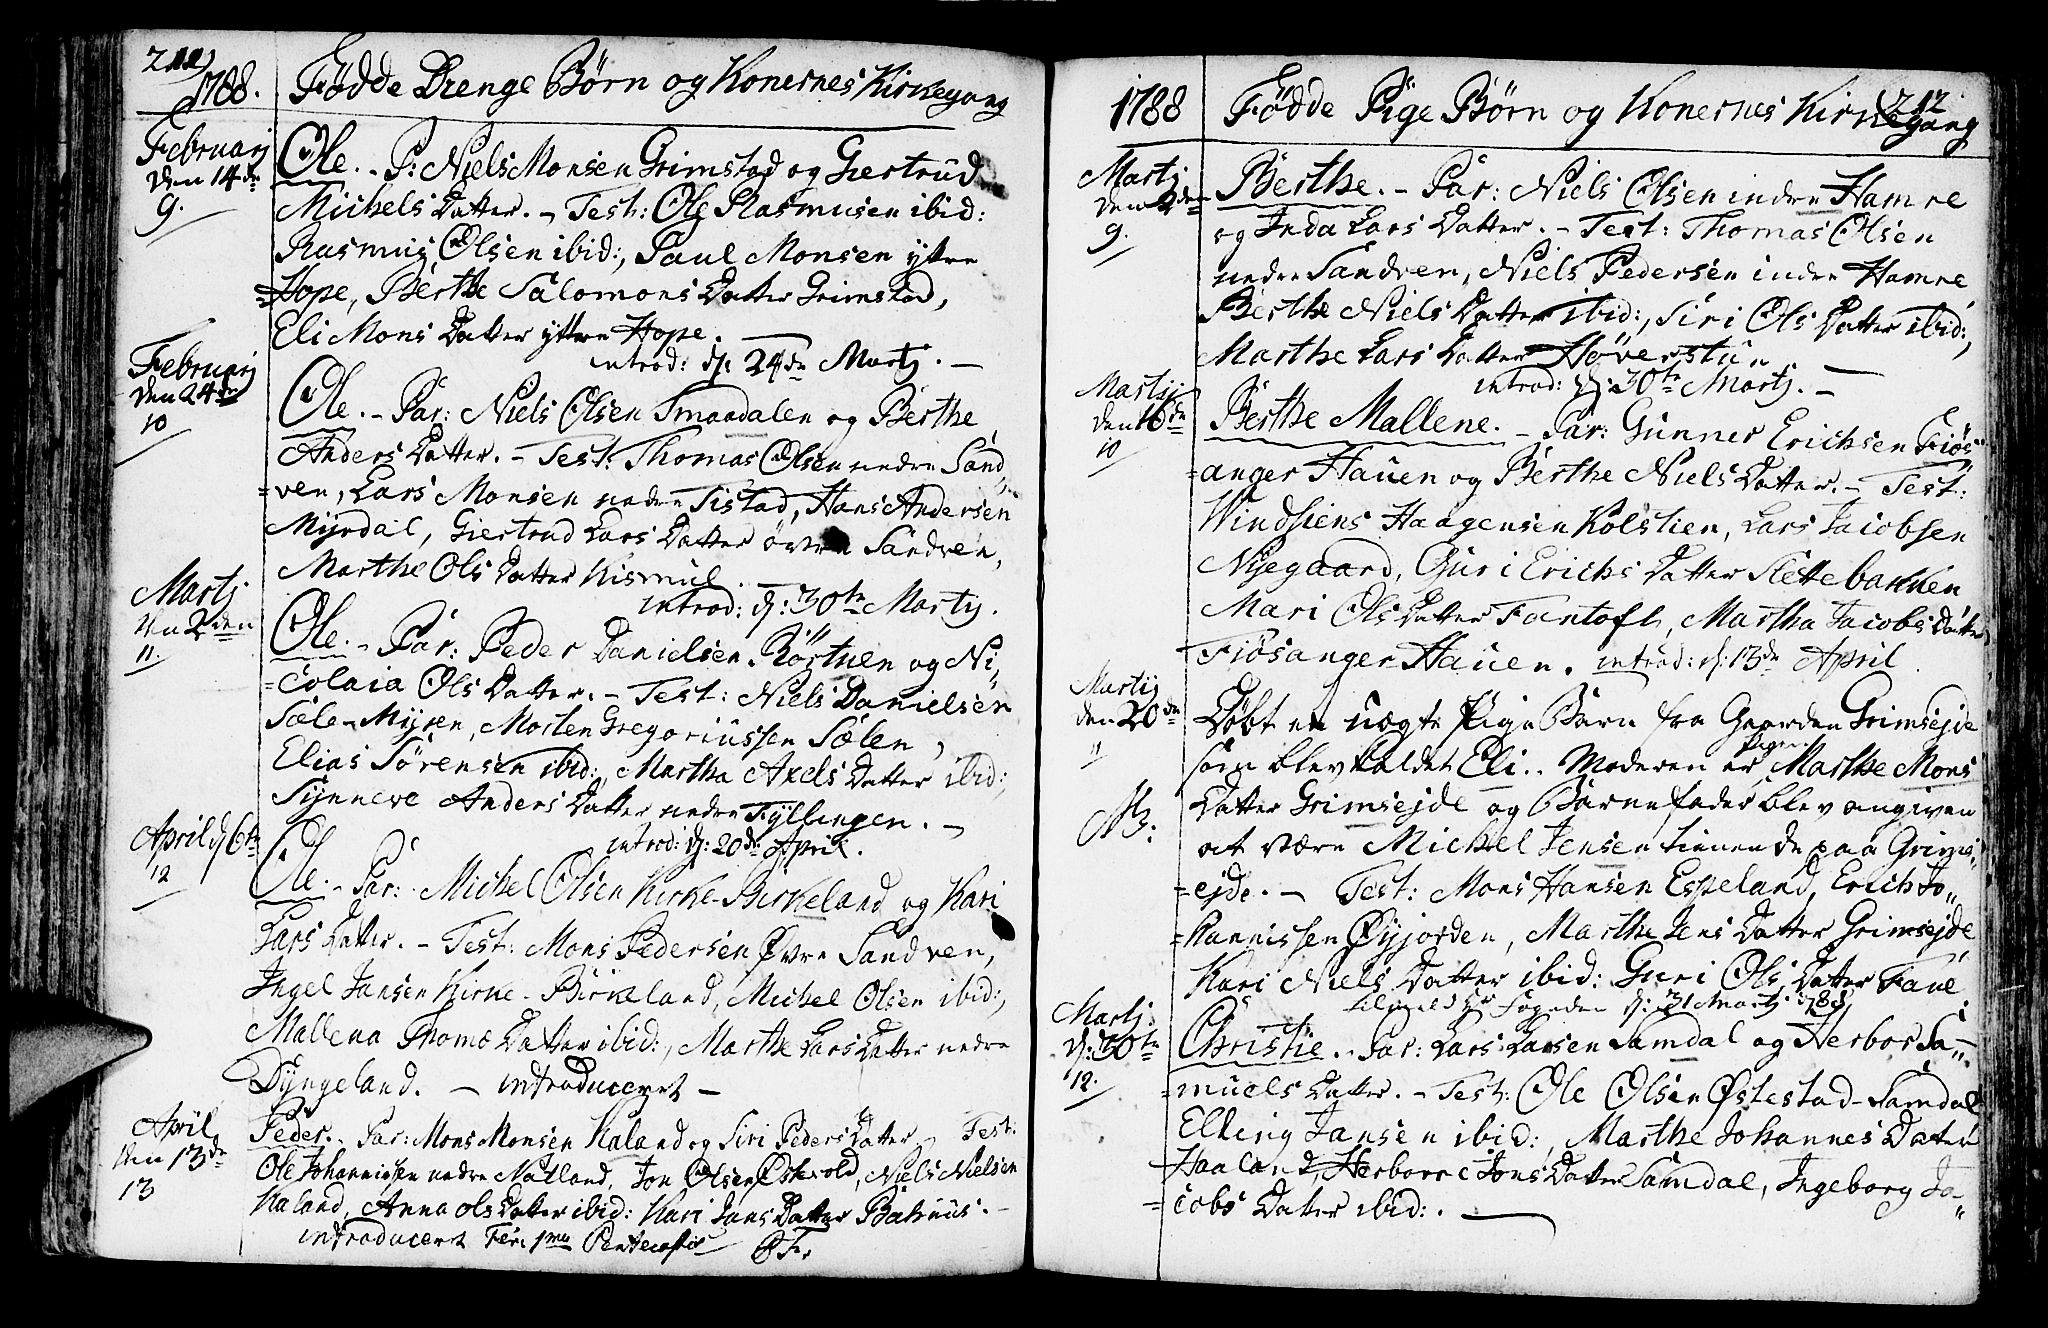 211
1788. Födde Drenge Börn og Konernes Kirkegang
Februarij
den 14de
9.
Ole. - P: Niels Monsen Grimstad og Giertrud
Michels Datter. - Test: Ole Rasmusen ibid:
Rasmus Olsen ibid:, Paul Monsen yttre
=Hope, Berthe Salomons Datter Grimstad,
Eli Mons Datter yttre Hope.
introd: d: 24de Martj. -
Februarij
den 24de
10
Ole. - Par: Niels Olsen Smaadalen og Berthe
Anders Datter. - Test: Thomas Olsen nedre Sand„
=ven, Lars Monsen nedre Tistad, Hans Andersen
Myrdal, Giertrud Lars Datter övre Sandven,
Marthe Ols Datter Kismul.
introd: d: 30te Martij.
Martj
den 2den
11.
Ole. - Par: Peder Danielsen Börtnen og Ni„
=colaia Ols Datter. - Test: Niels Danielsen
Sæle-Myren, Morten Gregoriussen Sælen,
Elias Sörensen ibid:, Martha Axels Datter ibid:,
Synneve Anders Datter nedre Tyllingen. -
introd: d: 20de April.
April d 6te
12
Ole. - Par: Michel Olsen Kirke-Birkeland og Kari
Lars Datter. - Test: Mons Pedersen Övre Sandven,
Ingel Jansen Kirke-Birkeland, Michel Olsen ibid:,
Mallena Thomæ Datter ibid:, Marthe Lars Datter nedre
Dyngeland. - introduceret -
April
den 13de
13
Peder. - Par: Mons Monsen Haland og Siri Peders Datter - Test:
Ole Johannissen nedre Natland, Jon Olsen, Niels Nielsen
Haland, Anna Ols Datter ibid: Kari Jans Datter Bahuus. -
introduceret Fer: 1ma Pentecostis
212
1788 Födde Pige Börn og Konernes Kirkegang
Martj.
den 2den
9.
Berthe. - Par: Niels Olsen indre Hamre
og Inda Lars Datter. - Test: Thomas Olsen
nedre Sandven, Niels Pedersen indre Hamre
Berthe Niels Datter ibid:, Siri Ols Datter ibid:,
Marthe Lars Datter Höverstun
introd: d: 30te Martj. -
Martij
den 16de
10
Berthe Mallene. - Par: Gunner Erichsen Fiös„
=anger Hauen og Berthe Niels Datter. - Test:
Windsiens Haagensen Kolstien, Lars Jacobsen
Nygaard, Guri Erichs Datter Slettebakken
Mari Ols Datter Fantoft, Martha Jacobs Datter
Fiösanger Hauen. introd: d: 13de April.
Martij
den 20de
11
NB:
Döbt en uægte Pige Barn fra Gaarden Grimsejde
som blev kaldet Eli. Moderen er Pigen Marthe Mons
Datter Grimsejde og Barnefader blev angiven
at være Michel Jensen tienende paa Grims„
=ejde. - Test: Mons Hansen Espeland, Erich Jo„
=hannissen Öyjorden, Marthe Jens Datter Grimsejde
Kari Niels Datter ibid: Guri Ols Datter Fane
tilmeldt Hr Fogeden d: 31 Martj 1788
Martj.
d: 30te
12.
Christie. - Par: Lars Larsen Samdal og Herbor Sa„
=muels Datter. - Test: Ole Olsen Östestad-Samdal
Elling Jansen ibid:, Marthe Johannes Datter
Haaland, Herborre Jons Datter Samdal, Ingeborg Ja„
=cobs Datter ibid:.